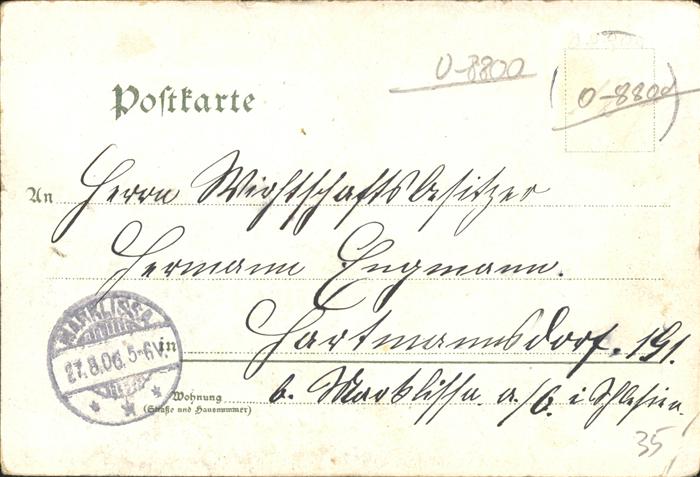 O-8800
(O-8800)
Postkarte
An Herrn Wirthschaftsbesitzer
Hermann Engmann.
in Hartmannsdorf. 191.
Wohnung b. Marklissa. a/b. i Schlesien
(Straße und Hausnummer)
MARKLISSA
27.8.06. 5-6V.
35